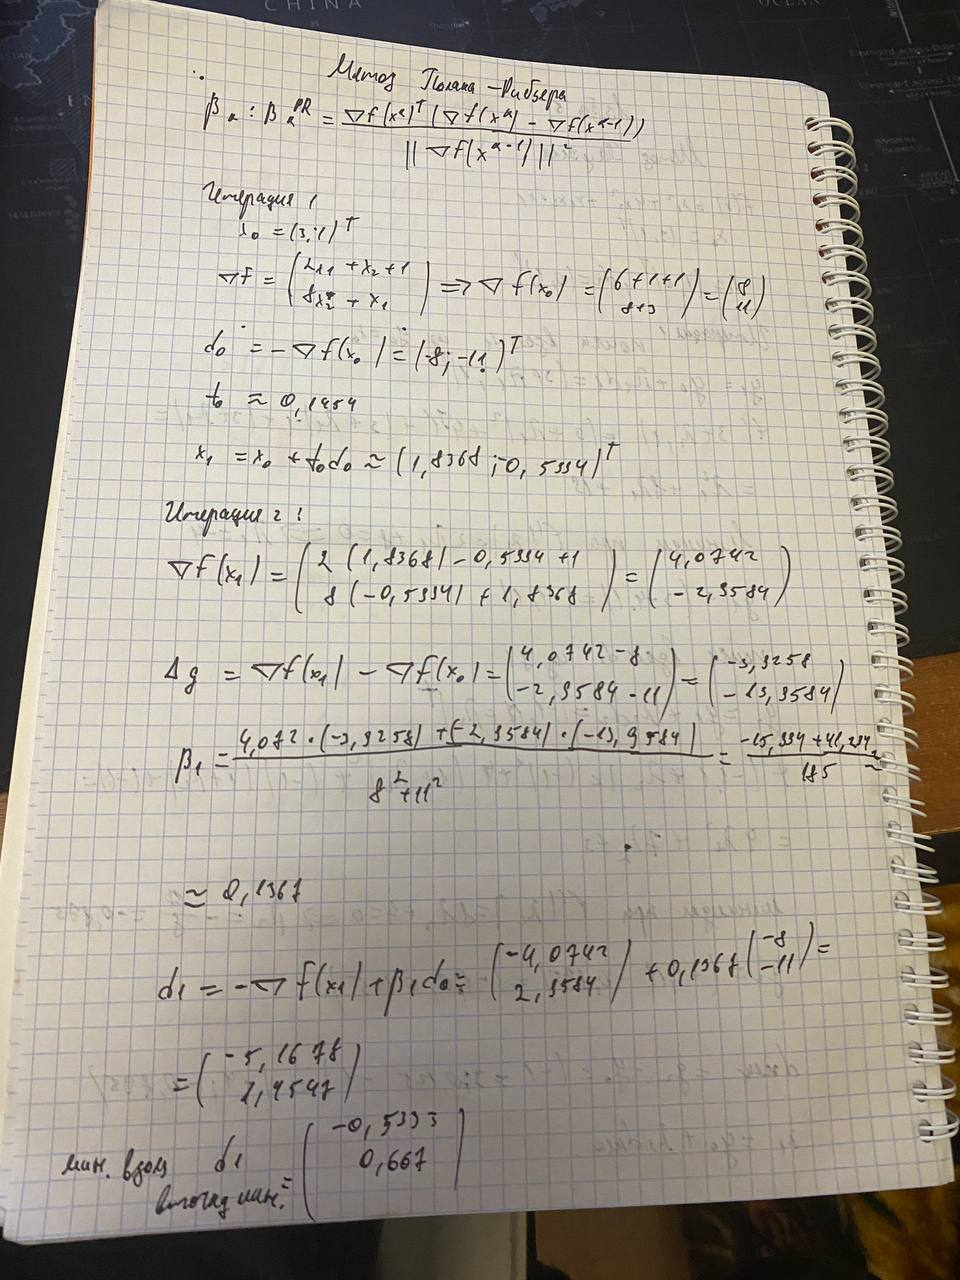 Метод Полака-Рибьера
βₖ : βₖᴾᴿ = ∇f(xᵏ)ᵀ(∇f(xᵏ) - ∇f(xᵏ⁻¹)) / ||∇f(xᵏ⁻¹)||²
Итерация 1
x₀ = (3;1)ᵀ
∇f = (2x₁ + x₂ + 1; 8x₂ + x₁) => ∇f(x₀) = (6+1+1; 8+3) = (8; 11)
d₀ = -∇f(x₀) = (-8; -11)ᵀ
t₀ ≈ 0,1454
x₁ = x₀ + t₀d₀ ≈ (1,8368; -0,5994)ᵀ
Итерация 2:
∇f(x₁) = (2(1,8368) - 0,5994 + 1; 8(-0,5994) + 1,8368) = (4,0742; -2,9584)
Δg = ∇f(x₁) - ∇f(x₀) = (4,0742 - 8; -2,9584 - 11) = (-3,9258; -13,9584)
β₁ = (4,072·(-3,9258) + (-2,9584)·(-13,9584)) / (8² + 11²) = (-15,994 + 41,294) / 185 ≈
≈ 0,1367
d₁ = -∇f(x₁) + β₁d₀ = (-4,0742; 2,9584) + 0,1367(-8; -11) =
= (-5,1678; 1,4547)
мин. вдоль d₁
в точку мин. = (-0,5333; 0,667)